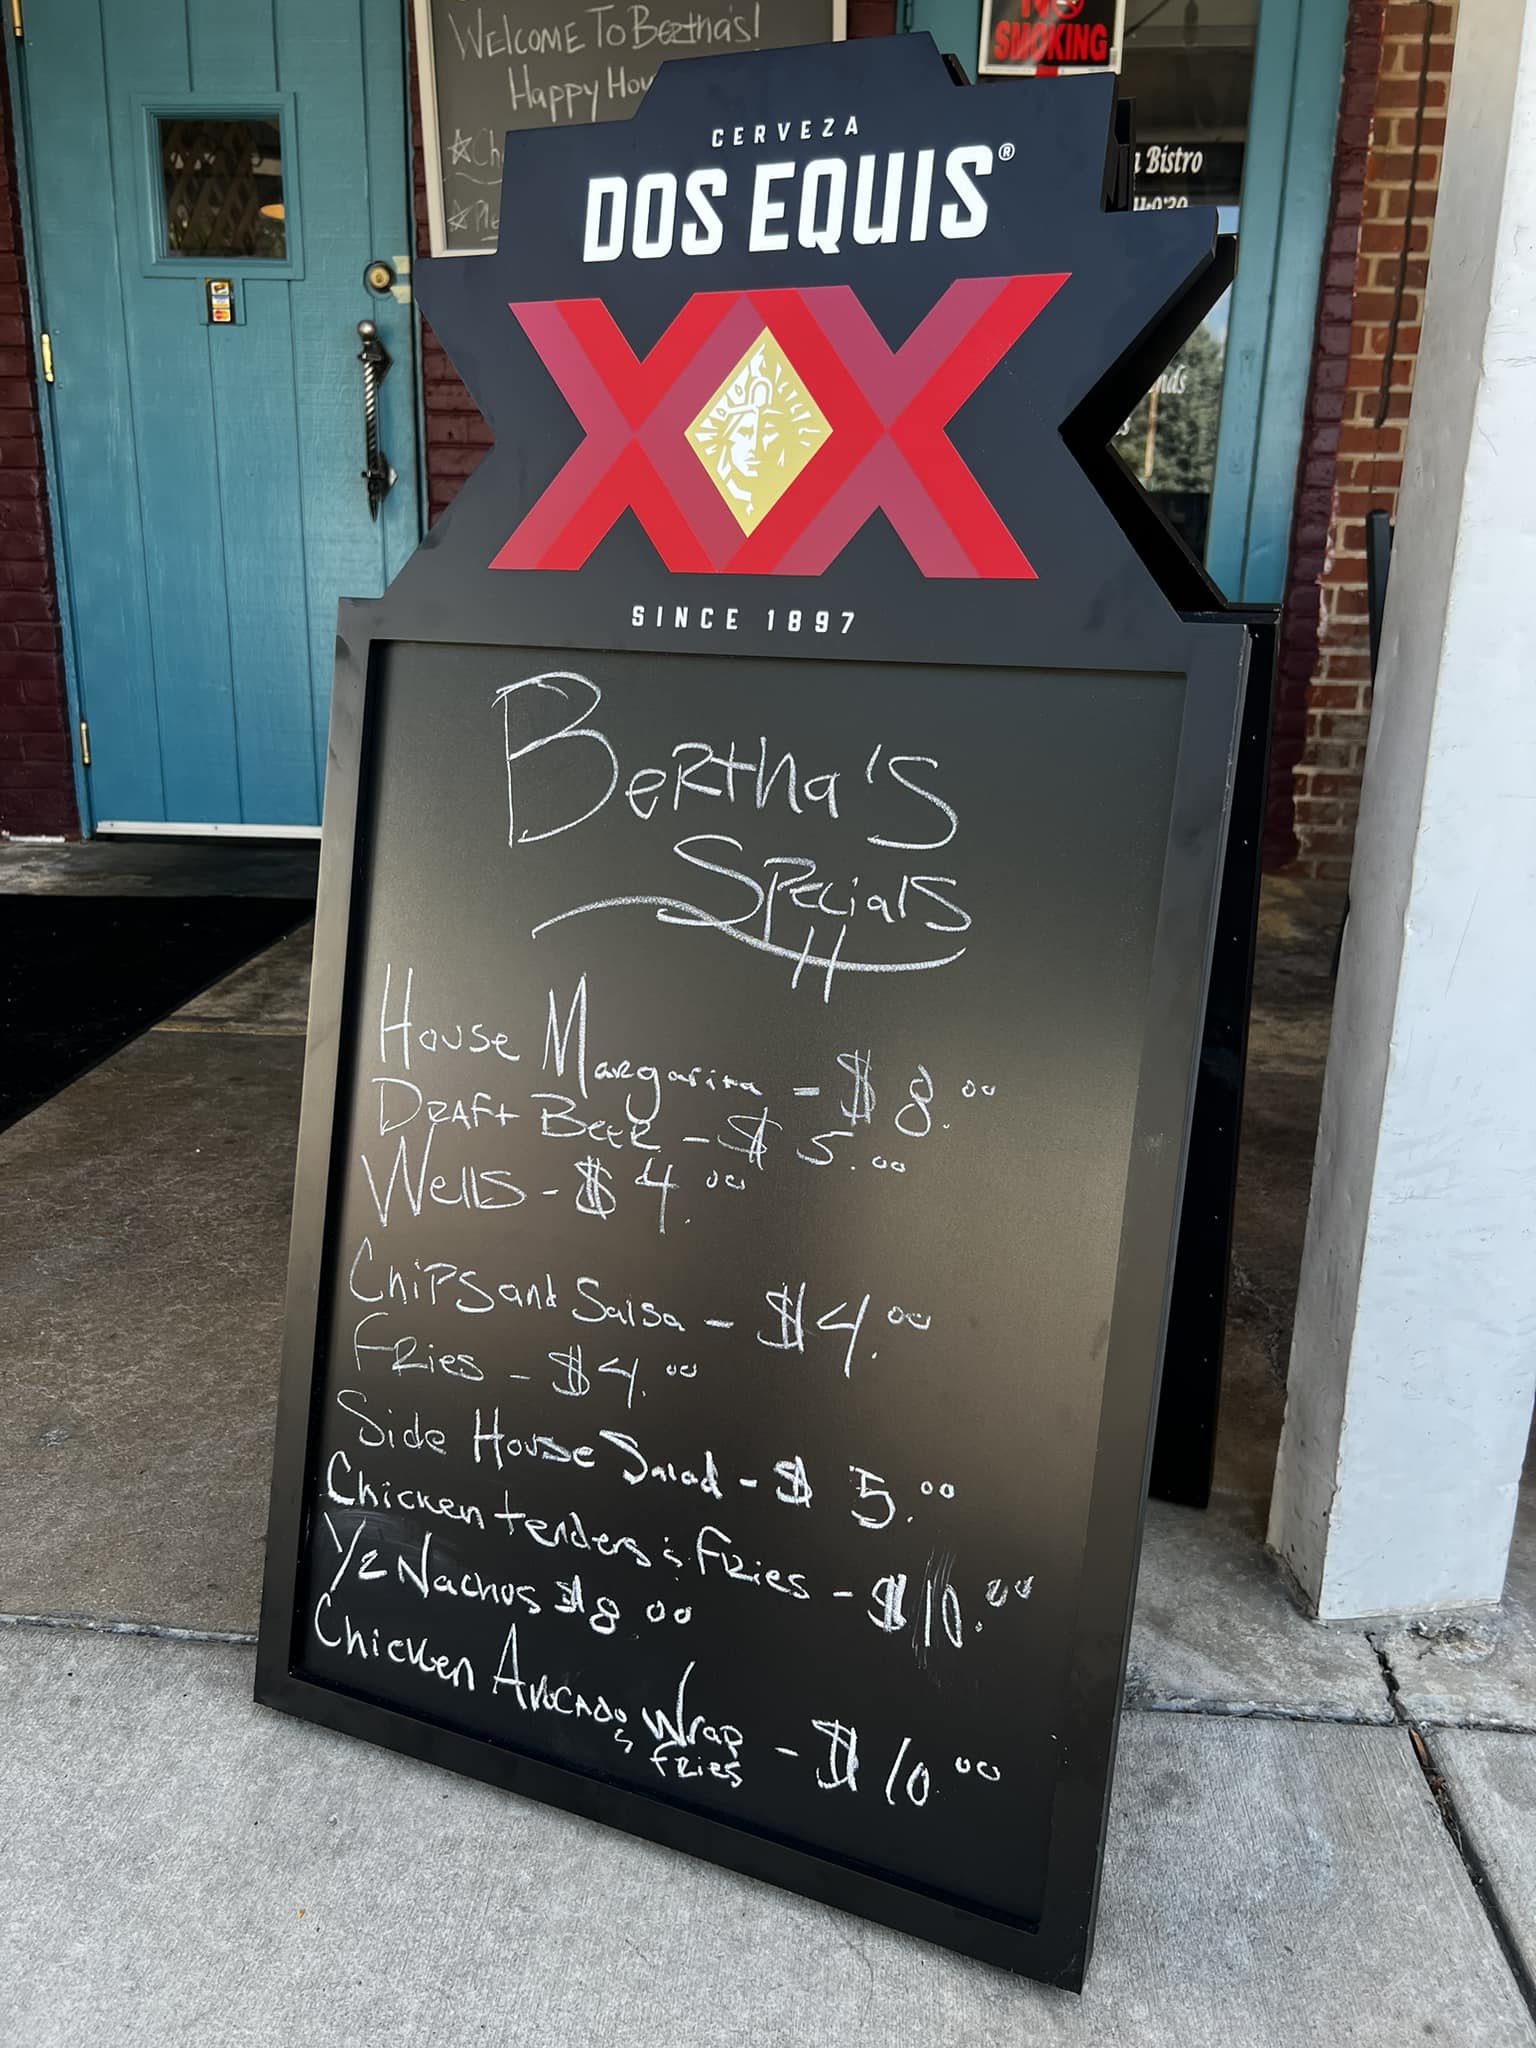 Welcome To Bertha's!
Happy Hou
NO
SMOKING
Bistro
CERVEZA
DOS EQUIS®
XX
SINCE 1897
Bertha's
Specials
House Margarita - $8.00
Draft Beer - $5.00
Wells - $4.00
Chips and Salsa - $4.00
Fries - $4.00
Side House Salad - $5.00
Chicken tenders & Fries - $10.00
1/2 Nachos $8.00
Chicken Avocado Wrap - $10.00
& Fries